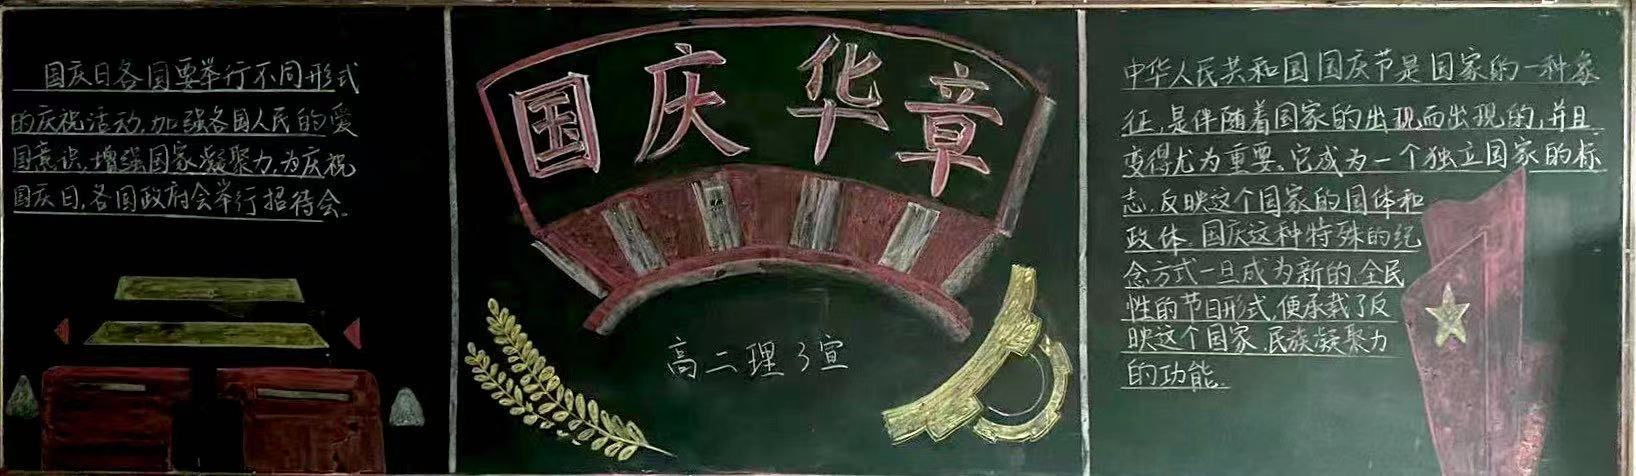 国庆日各国要举行不同形式
的庆祝活动,加强各国人民的爱
国意识,增强国家凝聚力,为庆祝
国庆日,各国政府会举行招待会.
国庆华章
高二理3宣
中华人民共和国国庆节是国家的一种象
征,是伴随着国家的出现而出现的,并且
变得尤为重要。它成为一个独立国家的标
志,反映这个国家的国体和
政体.国庆这种特殊的纪
念方式一旦成为新的,全民
性的节日形式,便承载了反
映这个国家.民族凝聚力
的功能.